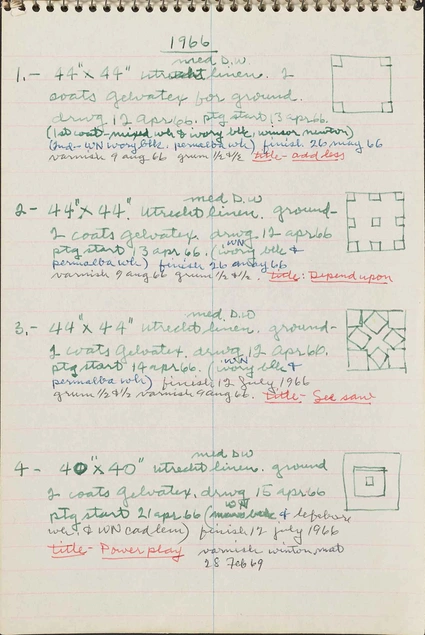 1966
med D.W
1.- 44" x 44" utrecht linen. 2
coats gelvatex for ground.
drwg 12 apr 66. ptg start 13 apr 66.
(1st coat - mixed wh & ivory blk, winsor newton)
2nd - WN ivory blk. permalba wh) finish 26 may 66
varnish 9 aug 66 grum 1/2 & 1/2 title - add less
med D.W
2 - 44" x 44". Utrecht linen. ground -
2 coats gelvatex. drwg 12 apr 66
WN
ptg start 13 apr 66. (ivory blk &
permalba wh) finish 26 may 66
varnish 9 aug 66 grum 1/2 & 1/2. title: Depend upon
med D.W
3.- 44" x 44" utrecht linen. ground -
2 coats gelvatex. drwg 12 apr 66.
WN
ptg start 14 apr 66. (ivory blk &
permalba wh) finish 12 July 1966
grum 1/2 & 1/2 varnish 9 aug 66. title - See saw
med DW
4 - 40" x 40" utrecht linen. ground
2 coats gelvatex. drwg 15 apr 66
WN
ptg start 21 apr 66 ( & lefebvre
wh. & WN cad lem) finish 12 july 1966
title - Power play varnish winton mat
28 Feb 69